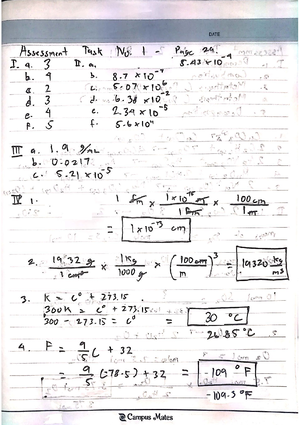 DATE
Assessment Task No. 1 - Page 24.
I. a. 3 II. a. 5.43 x 10⁻⁴
b. 4 b. 8.7 x 10⁻⁹
c. 2 c. 5.07 x 10⁶
d. 3 d. 6.38 x 10⁻²
e. 4 e. 2.39 x 10⁻⁵
f. 5 f. 5.6 x 10⁴
III a. 1.9 g/mL
b. 0.0217
c. 5.21 x 10⁻⁵
IV 1. 1 fm x 1 x 10⁻¹⁵ m / 1 fm x 100 cm / 1 m
= 1 x 10⁻¹³ cm
2. 19.32 g / 1 cm³ x 1 kg / 1000 g x (100 cm / m)³ = 19320 kg / m³
3. K = C° + 273.15
300K = C° + 273.15
300 - 273.15 = C° = 30 °C
26.85 °C
4. F = 9/5 C + 32
= 9/5 (-78.5) + 32 = -109 °F
-109.3 °F
Campus Mates